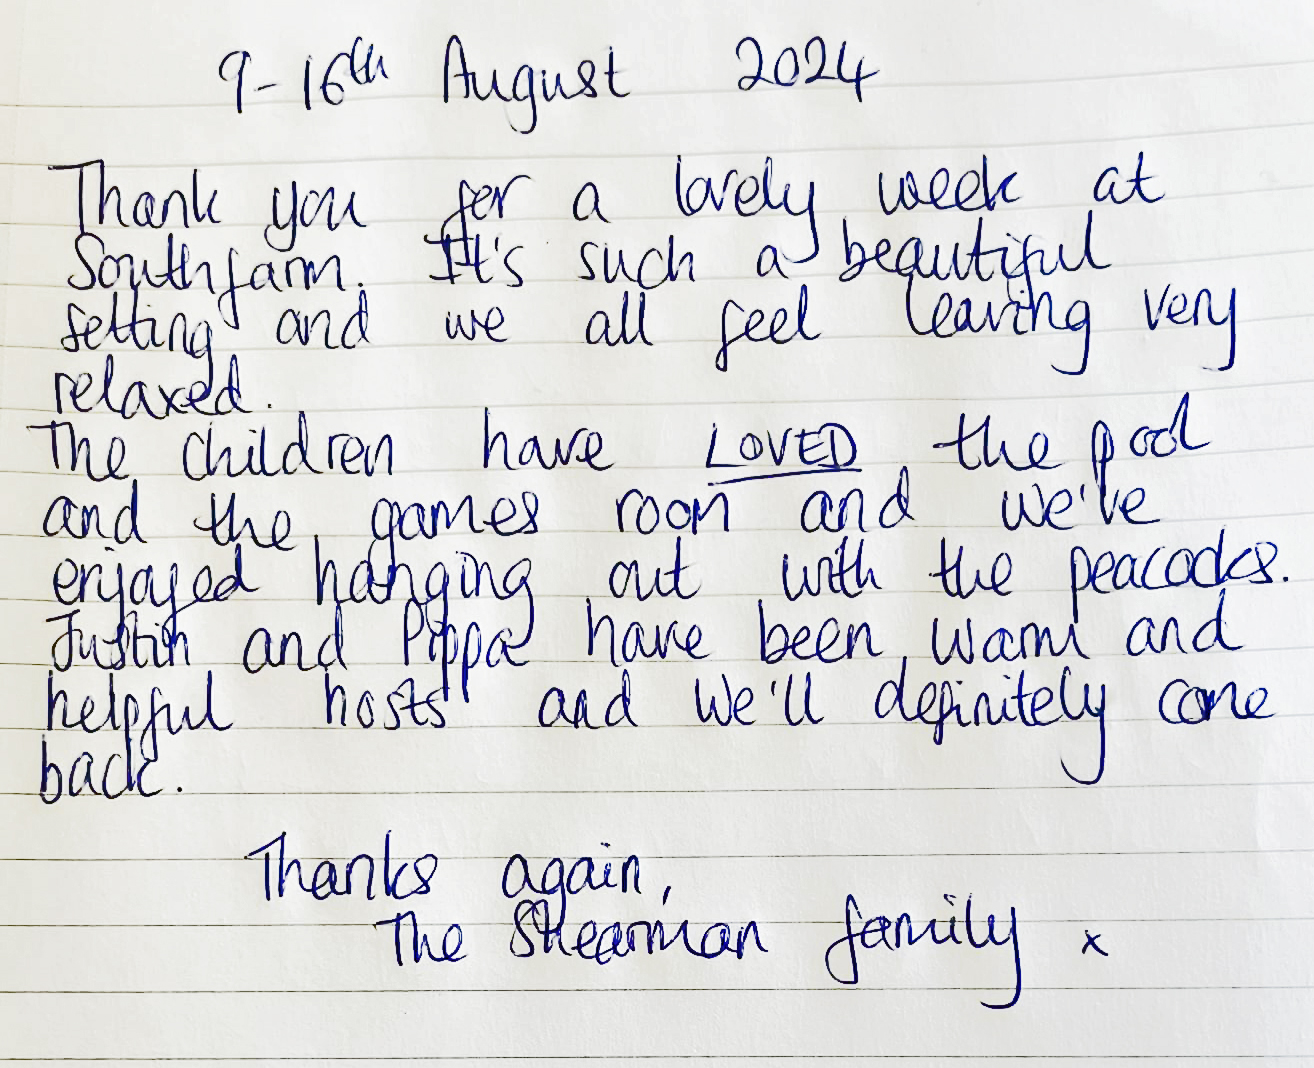 9-16th August 2024
Thank you for a lovely week at
Southfarm. It's such a beautiful
setting and we all feel leaving very
relaxed.
The children have LOVED the pool
and the games room and we've
enjoyed hanging out with the peacocks.
Justin and Pippa have been warm and
helpful hosts and we'll definitely come
back.
Thanks again,
The Shearman family x